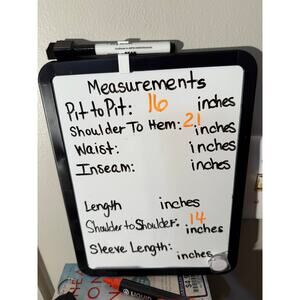 Measurements
Pit to Pit: 16 inches
Shoulder To Hem: 21 inches
Waist: inches
Inseam: inches
Length inches
Shoulder to Shoulder: 14 inches
Sleeve Length: inches